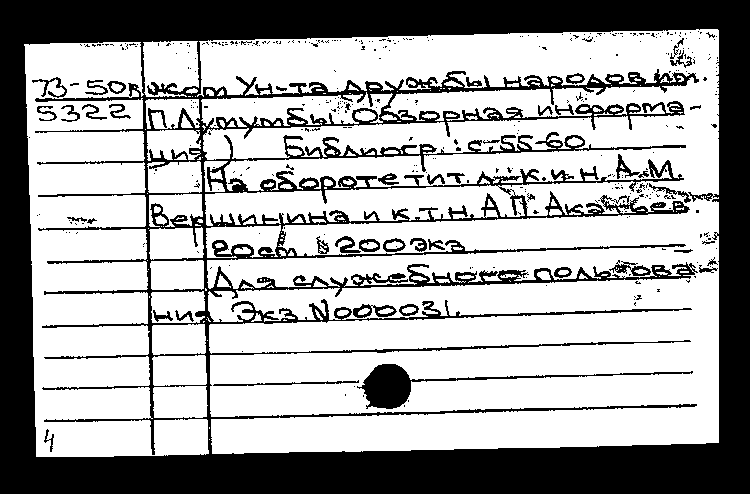 73-50 жском Ун-та дружбы народов им.
5322 П.Лумумбы. Обзорная информа-
ция) Библиогр.: с.55-60.
На обороте тит. л.: к.и.н. А.М.
Вершинина и к.т.н. А.П. Акатьев.
20см. 200экз
Для служебного пользова
ния. Экз. N000031.
4